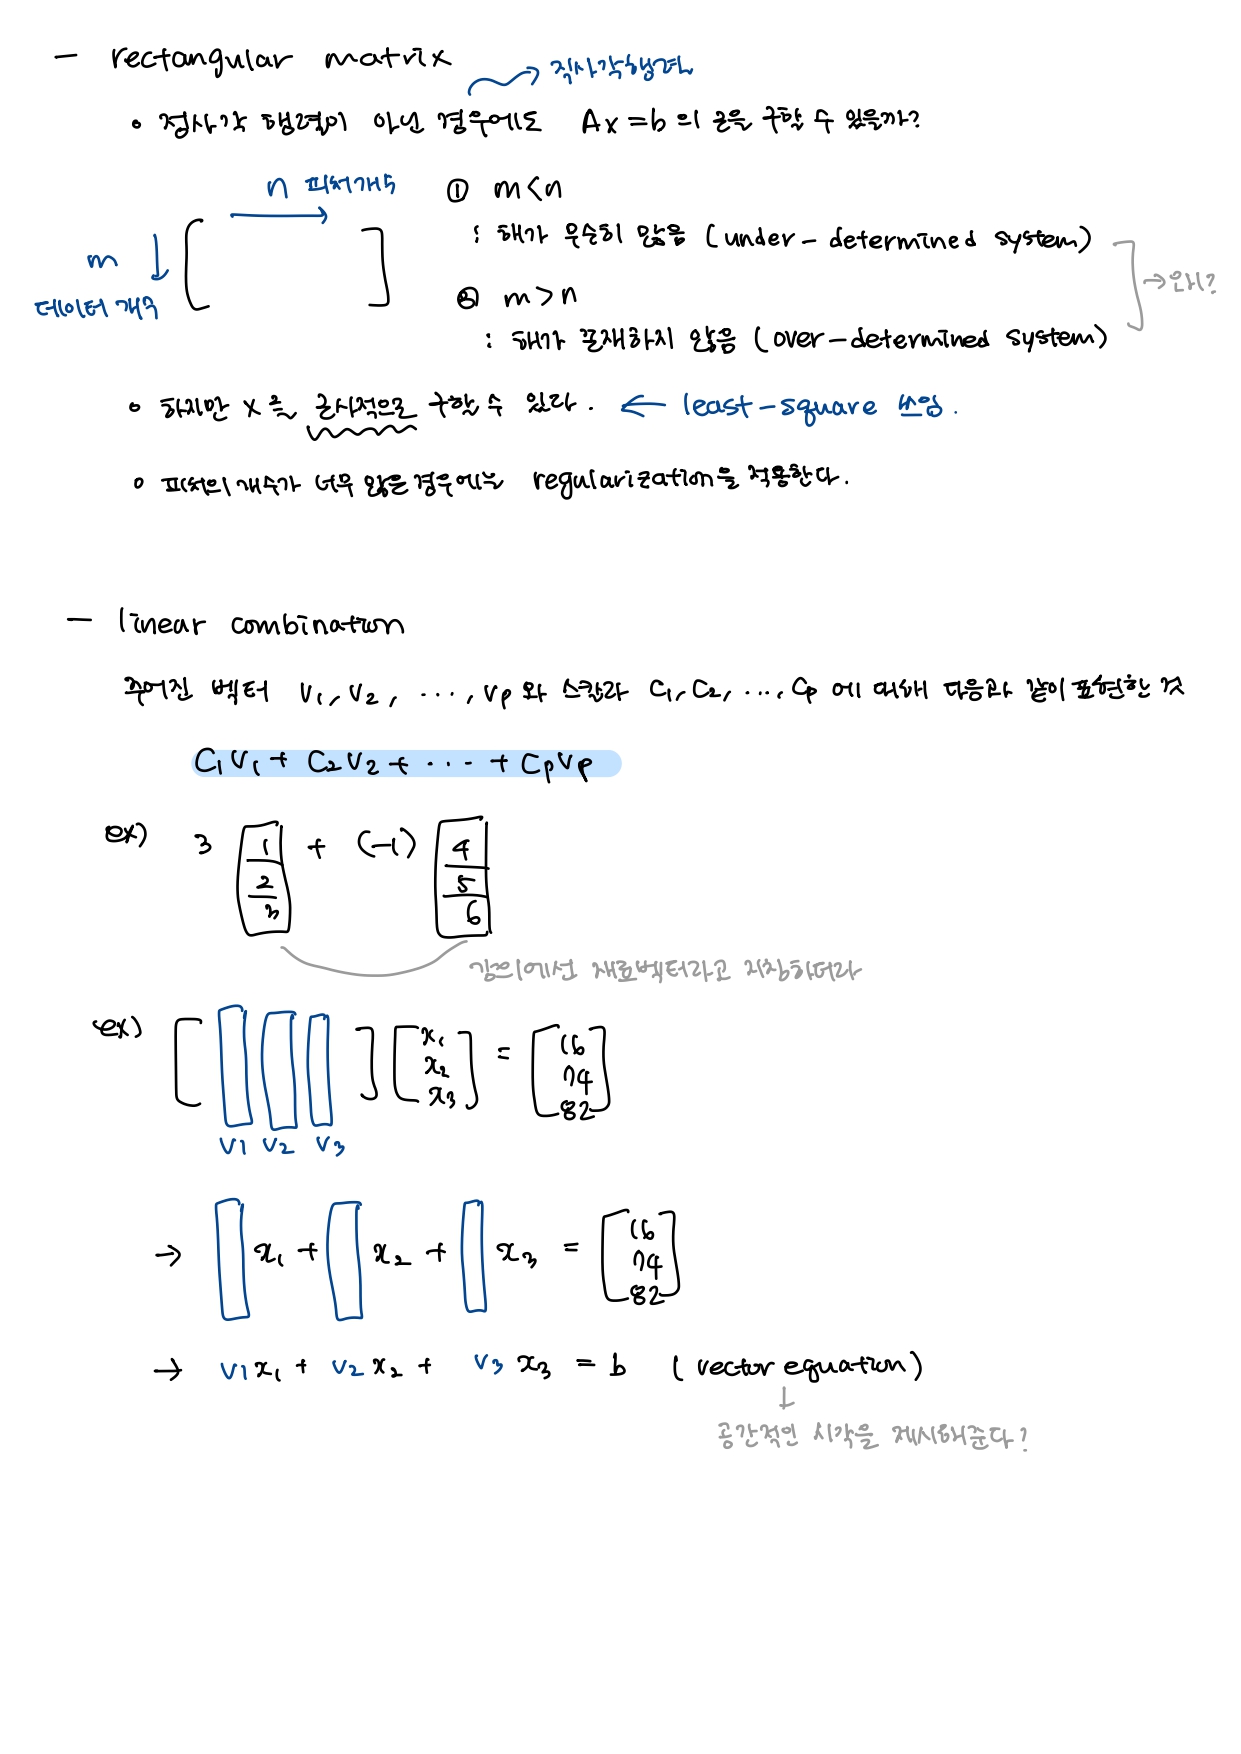 - rectangular matrix
→ 직사각행렬
• 정사각 행렬이 아닌 경우에도 Ax = b 의 근을 구할 수 있을까?
n 피처개수
m
데이터 개수
① m<n
: 해가 무수히 많음 (under-determined system)
② m>n
: 해가 존재하지 않음 (over-determined system)
→ 왜?
• 하지만 x를 근사적으로 구할 수 있다. ← least-square 쓰임.
• 피처의 개수가 너무 많은 경우에는 regularization을 적용한다.
- linear combination
주어진 벡터 v1, v2, ..., vp 와 스칼라 c1, c2, ..., cp 에 대해 다음과 같이 표현한 것
c1v1 + c2v2 + ... + cpvp
ex) 3 [1 2 3] + (-1) [4 5 6]
강의에선 재료벡터라고 지칭하더라
ex) [ ] [x1 x2 x3] = [66 74 82]
v1 v2 v3
→ x1 + x2 + x3 = [66 74 82]
→ v1x1 + v2x2 + v3x3 = b (vector equation)
공간적인 시각을 제시해준다?